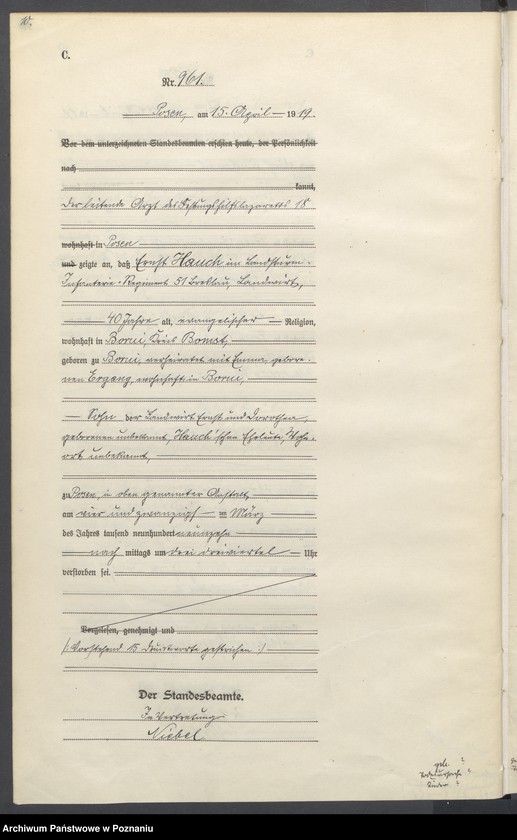 C.
Nr. 961.
Posen, am 15. April 1919.
Vor dem unterzeichneten Standesbeamten erschien heute, der Persönlichkeit
nach
kannt,
Der leitende Arzt des Festungshilfslazaretts 18
wohnhaft in Posen
und zeigte an, daß Ernst Hauch im Landsturm-
Infanterie-Regiment 51 Breslau, Landwirt,
40 Jahre alt, evangelischer Religion,
wohnhaft in Borui, Kreis Bomst,
geboren zu Borui, verheiratet mit Emma gebore-
nen Ergang, wohnhaft in Borui,
Sohn der Landwirt Ernst und Dorothea,
geborenen unbekannt, Hauch'schen Eheleute, Wohn-
ort unbekannt,
zu Posen, in oben genannter Anstalt,
am vier und zwanzigst im März
des Jahres tausend neunhundert neunzehn
nach mittags um drei dreiviertel Uhr
verstorben sei.
Vorgelesen, genehmigt und
(: Vorstehend 15 Druckworte gestrichen :)
Der Standesbeamte.
In Vertretung
Niebel.
Archiwum Państwowe w Poznaniu